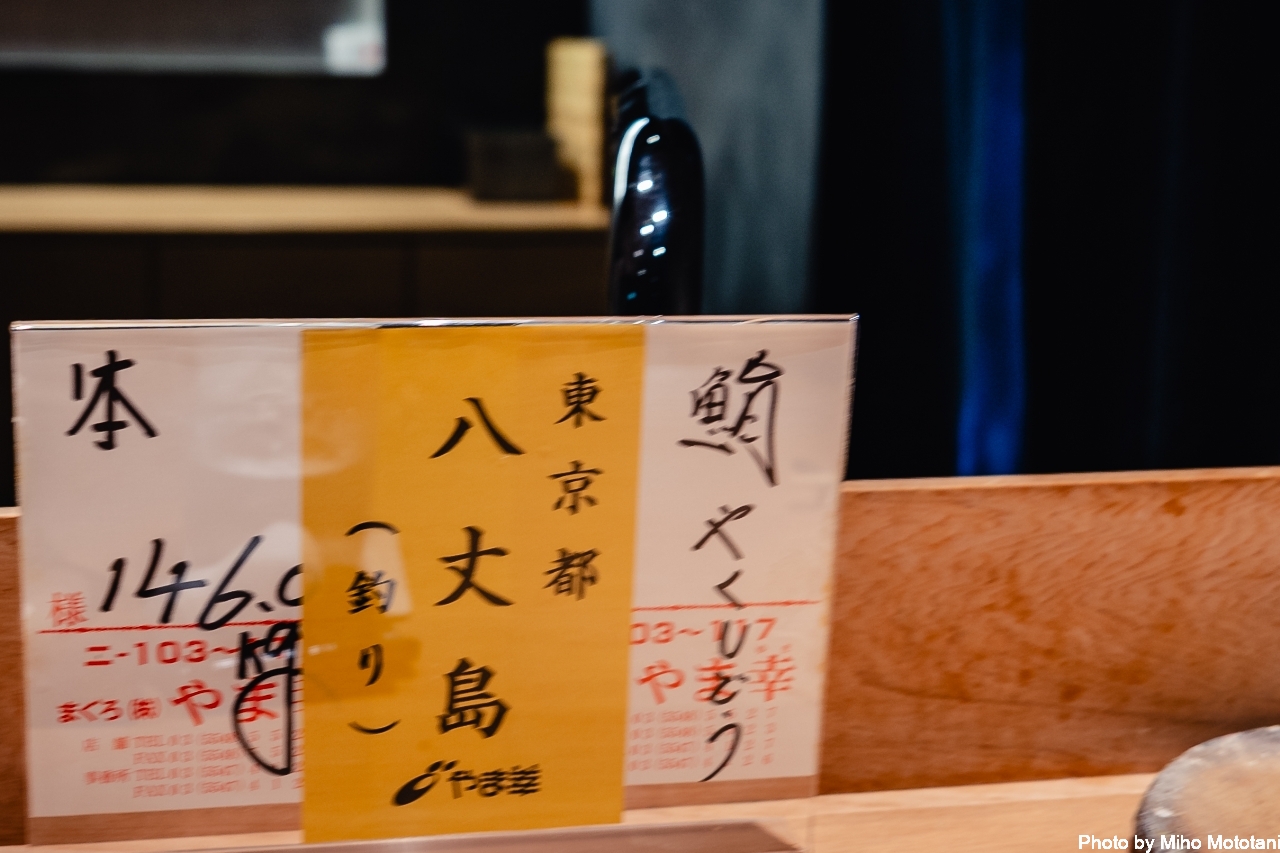 鮨 やくしどう
03～117
やま幸
東京都
八丈島
（釣り）
やま幸
本
146.0
kg
様
ニ-103～
まぐろ (株) やま
Photo by Miho Mototani